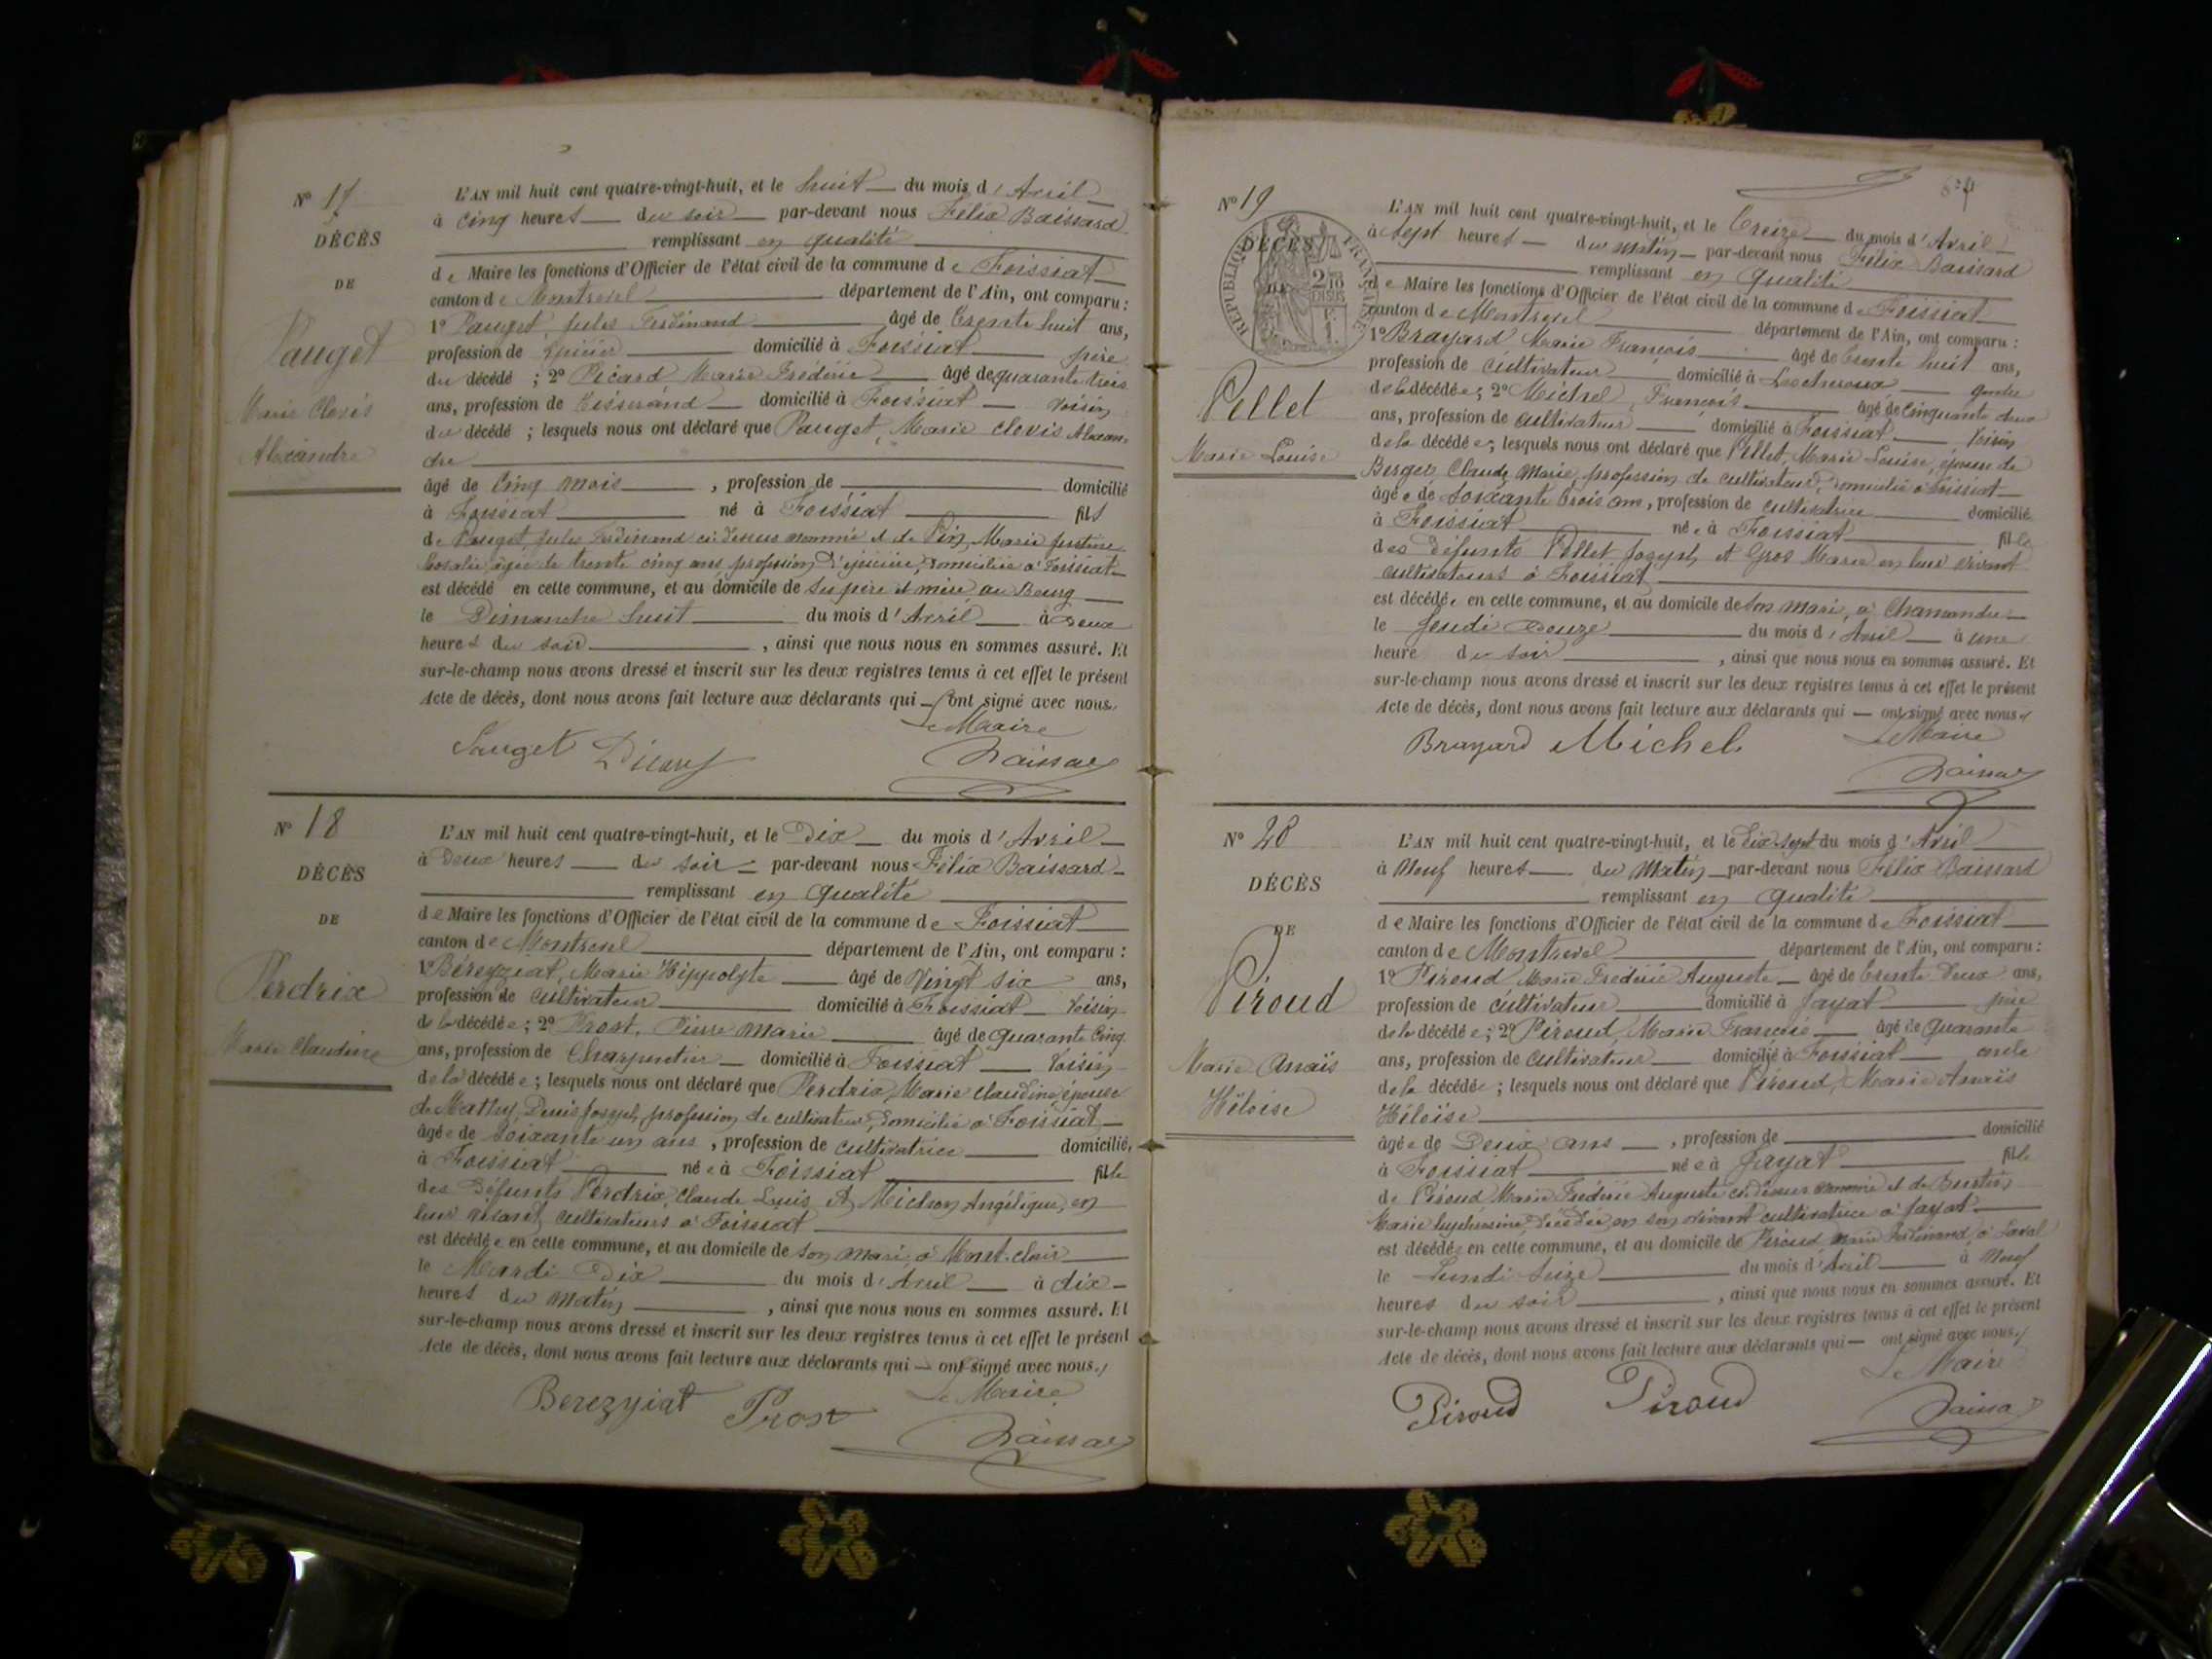 N° 17
DÉCÈS
DE
Pauget
Marie Clovis
Alexandre
L'AN mil huit cent quatre-vingt-huit, et le huit du mois d'Avril
à cinq heures du soir par-devant nous Félix Baissard
remplissant en qualité
de Maire les fonctions d'Officier de l'état civil de la commune de Foissiat
canton de Montrevel département de l'Ain, ont comparu :
1° Pauget, Jules Ferdinand âgé de trente huit ans,
profession de Epicier domicilié à Foissiat père
du décédé ; 2° Picard Marie Frédéric âgé de quarante trois
ans, profession de Tisserand domicilié à Foissiat voisin
du décédé ; lesquels nous ont déclaré que Pauget, Marie Clovis Alexan-
dre
âgé de Cinq mois , profession de domicilié
à Foissiat né à Foissiat fils
de Pauget, Jules Ferdinand ci-dessus nommé et de Pin Marie Justine
agée de trente cinq ans, profession d'épicière, domiciliée à Foissiat
est décédé en cette commune, et au domicile de ses père et mère au Bourg
le Dimanche huit du mois d'Avril à Deux
heures du soir , ainsi que nous nous en sommes assuré. Et
sur-le-champ nous avons dressé et inscrit sur les deux registres tenus à cet effet le présent
Acte de décès, dont nous avons fait lecture aux déclarants qui ont signé avec nous.
Le Maire
Pauget Picard Baissard
N° 18
DÉCÈS
DE
Perdrix
Marie Claudine
L'AN mil huit cent quatre-vingt-huit, et le Dix du mois d'Avril
à Deux heures du soir par-devant nous Félix Baissard
remplissant en qualité
de Maire les fonctions d'Officier de l'état civil de la commune de Foissiat
canton de Montrevel département de l'Ain, ont comparu :
1° Béreyziat, Marie Hippolyte âgé de Vingt six ans,
profession de cultivateur domicilié à Foissiat voisin
de la décédée ; 2° Prost, Pierre Marie âgé de quarante cinq
ans, profession de Charpentier domicilié à Foissiat voisin
de la décédée ; lesquels nous ont déclaré que Perdrix, Marie Claudine, épouse
de Mathy, Denis Joseph, profession de cultivateur, domicilié à Foissiat
âgée de Soixante un ans , profession de cultivatrice domiciliée,
à Foissiat née à Foissiat fille
des défunts Perdrix, Claude Louis et Michon Angélique, en
leur vivant, cultivateurs à Foissiat
est décédée en cette commune, et au domicile de son mari, à Mont-clair
le Mardi Dix du mois d'Avril à dix
heures du matin , ainsi que nous nous en sommes assuré. Et
sur-le-champ nous avons dressé et inscrit sur les deux registres tenus à cet effet le présent
Acte de décès, dont nous avons fait lecture aux déclarants qui ont signé avec nous.
Le Maire
Berezyiat Prost Baissard
N° 19
RÉPUBLIQUE FRANÇAISE
DÉCÈS
DE
Pellet
Marie Louise
L'AN mil huit cent quatre-vingt-huit, et le Treize du mois d'Avril
à Sept heures du matin par-devant nous Félix Baissard
remplissant en qualité
de Maire les fonctions d'Officier de l'état civil de la commune de Foissiat
canton de Montrevel département de l'Ain, ont comparu :
1° Brayard Marie François âgé de trente huit ans,
profession de cultivateur domicilié à Lescheroux gendre
de la décédée ; 2° Michel, François âgé de cinquante deux
ans, profession de cultivateur domicilié à Foissiat voisin
de la décédée ; lesquels nous ont déclaré que Pellet, Marie Louise, épouse de
Berger Claude Marie, profession de cultivateur, domicilié à Foissiat
âgée de soixante trois ans, profession de cultivatrice domicilié
à Foissiat née à Foissiat fille
des défunts Pellet Joseph et Gros Marie en leur vivant
cultivateurs à Foissiat
est décédée en cette commune, et au domicile de son mari, à Chamandre
le Jeudi Douze du mois d'Avril à une
heure du soir , ainsi que nous nous en sommes assuré. Et
sur-le-champ nous avons dressé et inscrit sur les deux registres tenus à cet effet le présent
Acte de décès, dont nous avons fait lecture aux déclarants qui ont signé avec nous.
Le Maire
Brayard Michel Baissard
N° 20
DÉCÈS
DE
Piroud
Marie Anaïs
Héloïse
L'AN mil huit cent quatre-vingt-huit, et le dix-sept du mois d'Avril
à Neuf heures du Matin par-devant nous Félix Baissard
remplissant en qualité
de Maire les fonctions d'Officier de l'état civil de la commune de Foissiat
canton de Montrevel département de l'Ain, ont comparu :
1° Piroud, Marie Frédéric Auguste âgé de trente Deux ans,
profession de cultivateur domicilié à Jayat père
de la décédée ; 2° Piroud, Marie François âgé de quarante
ans, profession de cultivateur domicilié à Foissiat oncle
de la décédée ; lesquels nous ont déclaré que Piroud, Marie Anaïs
Héloïse
âgée de Deux ans , profession de domicilié
à Foissiat née à Jayat fille
de Piroud Marie Frédéric Auguste ci-dessus nommé et de
Marie décédée en son vivant cultivatrice à Jayat
est décédée en cette commune, et au domicile de Piroud, Marie Ferdinand, à Laval
le Lundi Seize du mois d'Avril à Neuf
heures du soir , ainsi que nous nous en sommes assuré. Et
sur-le-champ nous avons dressé et inscrit sur les deux registres tenus à cet effet le présent
Acte de décès, dont nous avons fait lecture aux déclarants qui ont signé avec nous.
Le Maire
Piroud Piroud Baissard